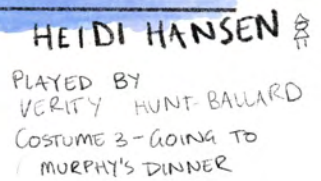 HEIDI HANSEN
PLAYED BY
VERITY HUNT-BALLARD
COSTUME 3 - GOING TO
MURPHY'S DINNER